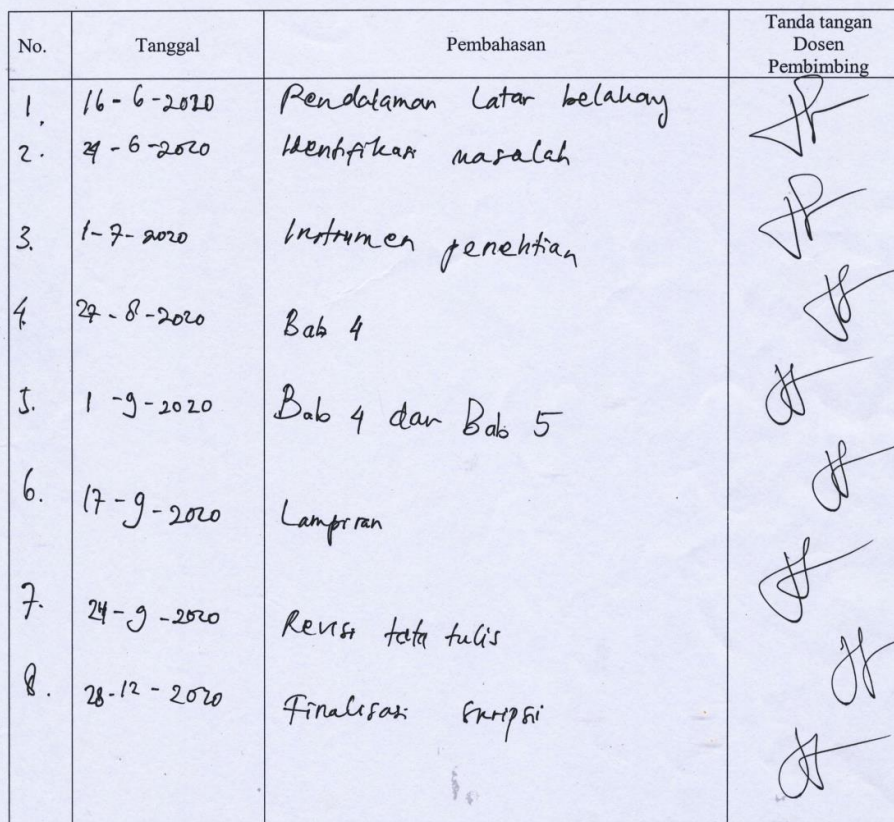 No. Tanggal Pembahasan Tanda tangan
Dosen
Pembimbing
1. 16-6-2020 Pendalaman latar belakang
2. 24-6-2020 Identifikasi masalah
3. 1-7-2020 Instrumen penelitian
4. 27-8-2020 Bab 4
5. 1-9-2020 Bab 4 dan Bab 5
6. 17-9-2020 Lampiran
7. 24-9-2020 Revisi tata tulis
8. 28-12-2020 Finalisasi skripsi